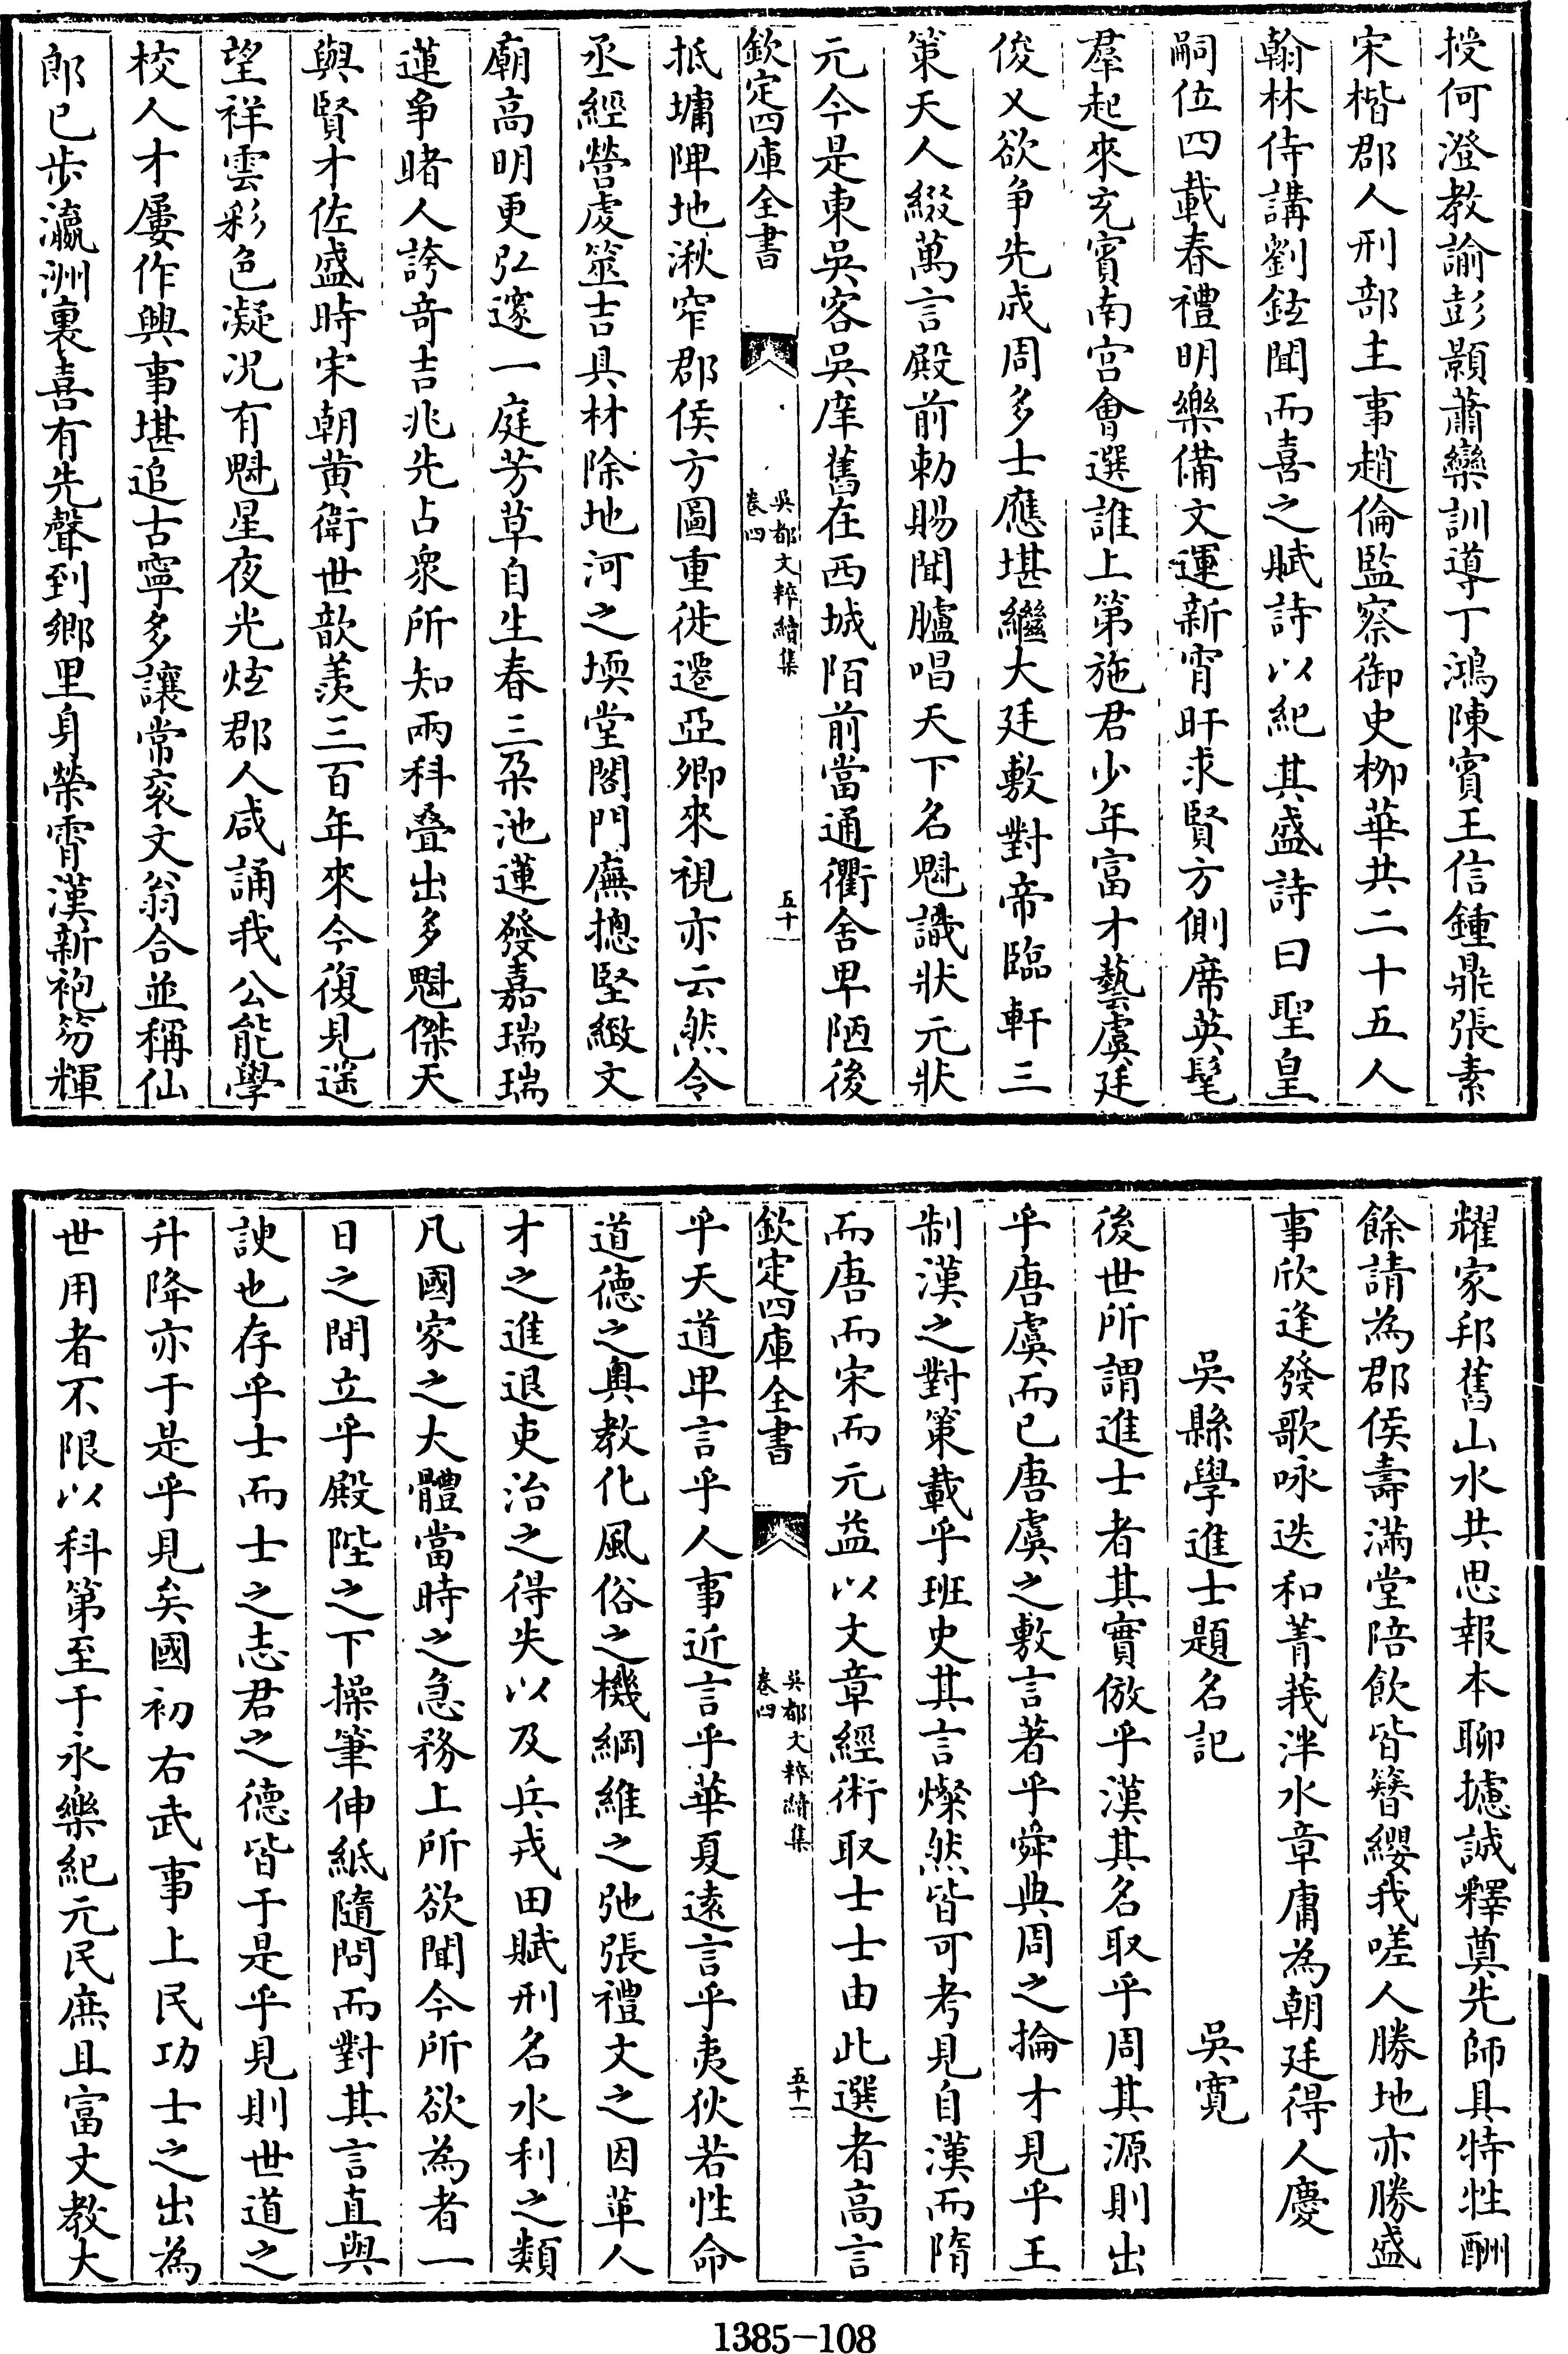 授何澄教諭彭顥蕭欒訓導丁鴻陳賓王信鍾鼎張素
宋楷郡人刑部主事趙倫監察御史柳華共二十五人
翰林侍講劉鉉聞而喜之賦詩以紀其盛詩曰聖皇
嗣位四載春禮明樂備文運新宵旰求賢方側席英髦
羣起來充賓南宮會選誰上第施君少年富才藝虞廷
俊乂欲争先成周多士應堪繼大廷敷對帝臨軒三
策天人綴萬言殿前勅賜聞臚唱天下名魁識狀元狀
元今是東吳客吳庠舊在西城陌前當通衢舍卑陋後
欽定四庫全書
吳都文粹續集
卷四
五十
抵墉陴地湫窄郡侯方圖重徙遷亞卿來視亦云然令
丞經營處筮吉具材除地河之堧堂閣門廡摠堅緻文
廟高明更弘邃一庭芳草自生春三朶池蓮發嘉瑞瑞
蓮爭睹人誇竒吉兆先占衆所知兩科叠出多魁傑天
與賢才佐盛時宋朝黄衛世歆羡三百年來今復見遥
望祥雲彩色凝况有魁星夜光炫郡人咸誦我公能學
校人才屢作興事堪追古寧多讓常衮文翁合並稱仙
郎已步瀛洲裏喜有先聲到鄉里身榮霄漢新袍笏輝
耀家邦舊山水共思報本聊攄誠釋奠先師具特牲酬
餘請為郡侯壽滿堂陪飲皆簪纓我嗟人勝地亦勝盛
事欣逢發歌咏迭和菁莪泮水章庸為朝廷得人慶
吳縣學進士題名記　吳寛
後世所謂進士者其實倣乎漢其名取乎周其源則出
乎唐虞而已唐虞之敷言著乎舜典周之掄才見乎王
制漢之對策載乎班史其言燦然皆可考見自漢而隋
而唐而宋而元益以文章經術取士士由此選者高言
欽定四庫全書
吳都文粹續集
卷四
五十一
乎天道卑言乎人事近言乎華夏遠言乎夷狄若性命
道德之奥教化風俗之機綱維之弛張禮文之因革人
才之進退吏治之得失以及兵戎田賦刑名水利之類
凡國家之大體當時之急務上所欲聞今所欲為者一
日之間立乎殿陛之下操筆伸紙隨問而對其言直與
諛也存乎士而士之志君之德皆于是乎見則世道之
升降亦于是乎見矣國初右武事上民功士之出為
世用者不限以科第至于永樂紀元民庶且富文教大
1385-108